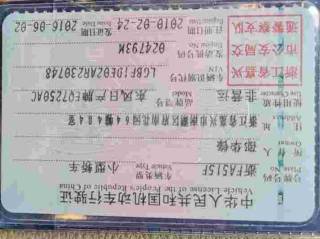 中华人民共和国机动车行驶证
Vehicle License of the People's Republic of China
号牌号码
Plate No.
浙FA515F
车辆类型
Vehicle Type
小型轿车
所有人
Owner
住址
Address
使用性质
Use Character
非营运
品牌型号
Model
东风日产牌EQ7250AC
浙江省嘉兴
市公安局交
通警察支队
车辆识别代号
VIN
LGBF1DE02AR230748
发动机号码
024793M
注册日期
2010-02-24
发证日期
Issue Date
2016-06-02